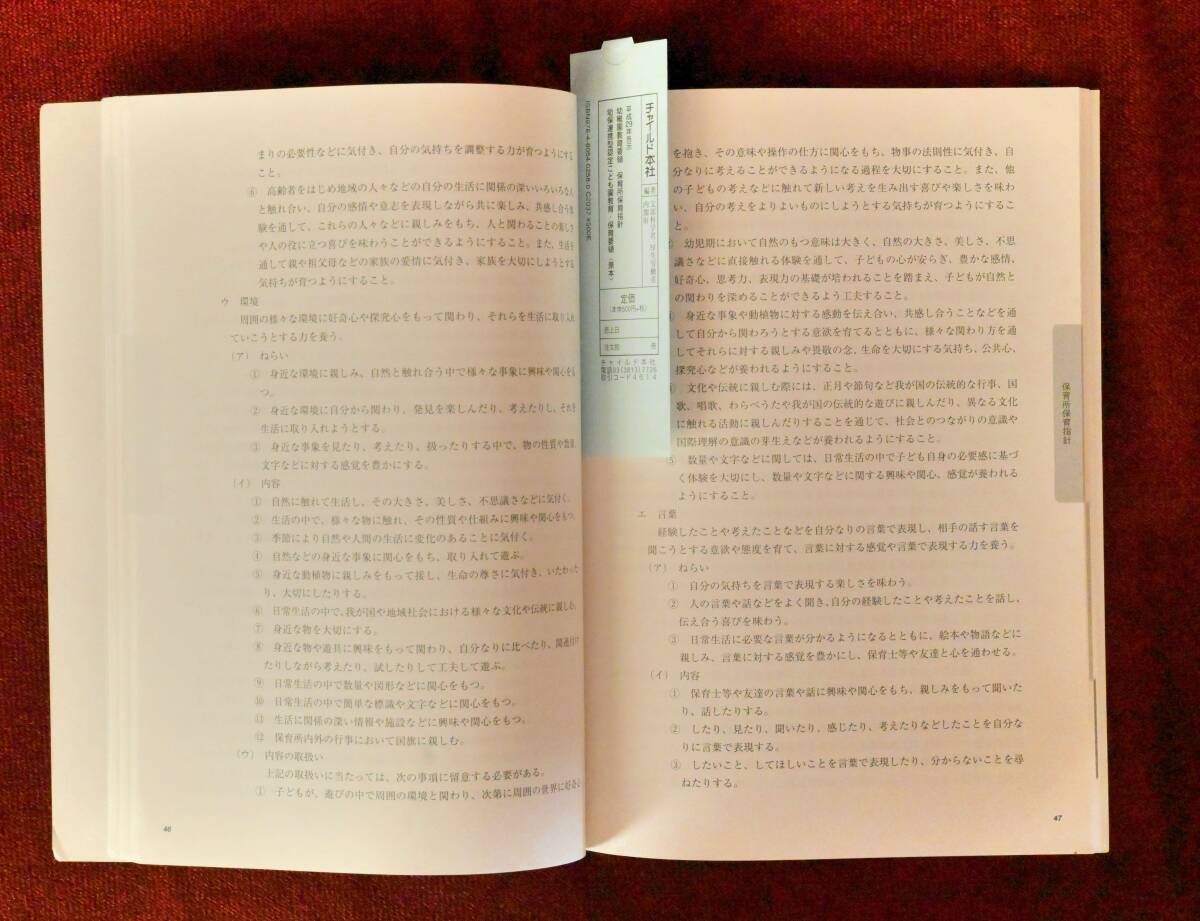 まりの必要性などに気付き、自分の気持ちを調整する力が育つようにする
こと。
⑥ 高齢者をはじめ地域の人々などの自分の生活に関係の深いいろいろな人
と触れ合い、自分の感情や意志を表現しながら共に楽しみ、共感し合う体
験を通して、これらの人々などに親しみをもち、人と関わることの楽しさ
や人の役に立つ喜びを味わうことができるようにすること。また、生活を
通して親や祖父母などの家族の愛情に気付き、家族を大切にしようとする
気持ちが育つようにすること。
ウ 環境
周囲の様々な環境に好奇心や探究心をもって関わり、それらを生活に取り入れ
ていこうとする力を養う。
(ア) ねらい
① 身近な環境に親しみ、自然と触れ合う中で様々な事象に興味や関心をも
つ。
② 身近な環境に自分から関わり、発見を楽しんだり、考えたりし、それを
生活に取り入れようとする。
③ 身近な事象を見たり、考えたり、扱ったりする中で、物の性質や数量、
文字などに対する感覚を豊かにする。
(イ) 内容
① 自然に触れて生活し、その大きさ、美しさ、不思議さなどに気付く。
② 生活の中で、様々な物に触れ、その性質や仕組みに興味や関心をもつ。
③ 季節により自然や人間の生活に変化のあることに気付く。
④ 自然などの身近な事象に関心をもち、取り入れて遊ぶ。
⑤ 身近な動植物に親しみをもって接し、生命の尊さに気付き、いたわった
り、大切にしたりする。
⑥ 日常生活の中で、我が国や地域社会における様々な文化や伝統に親しむ。
⑦ 身近な物を大切にする。
⑧ 身近な物や遊具に興味をもって関わり、自分なりに比べたり、関連付け
たりしながら考えたり、試したりして工夫して遊ぶ。
⑨ 日常生活の中で数量や図形などに関心をもつ。
⑩ 日常生活の中で簡単な標識や文字などに関心をもつ。
⑪ 生活に関係の深い情報や施設などに興味や関心をもつ。
⑫ 保育所内外の行事において国旗に親しむ。
(ウ) 内容の取扱い
上記の取扱いに当たっては、次の事項に留意する必要がある。
① 子どもが、遊びの中で周囲の環境と関わり、次第に周囲の世界に好奇心
46
チャイルド本社
編者 文部科学省 厚生労働省
内閣府
平成29年告示
幼稚園教育要領 保育所保育指針
幼保連携型認定こども園教育・保育要領〈原本〉
定価
(本体500円+税)
売上日
注文数 冊
チャイルド本社
電話03(3813)7726
取引コード4614
を抱き、その意味や操作の仕方に関心をもち、物事の法則性に気付き、自
分なりに考えることができるようになる過程を大切にすること。また、他
の子どもの考えなどに触れて新しい考えを生み出す喜びや楽しさを味わ
い、自分の考えをよりよいものにしようとする気持ちが育つようにするこ
と。
幼児期において自然のもつ意味は大きく、自然の大きさ、美しさ、不思
議さなどに直接触れる体験を通して、子どもの心が安らぎ、豊かな感情、
好奇心、思考力、表現力の基礎が培われることを踏まえ、子どもが自然と
の関わりを深めることができるよう工夫すること。
身近な事象や動植物に対する感動を伝え合い、共感し合うことなどを通
して自分から関わろうとする意欲を育てるとともに、様々な関わり方を通
してそれらに対する親しみや畏敬の念、生命を大切にする気持ち、公共心、
探究心などが養われるようにすること。
文化や伝統に親しむ際には、正月や節句など我が国の伝統的な行事、国
歌、唱歌、わらべうたや我が国の伝統的な遊びに親しんだり、異なる文化
に触れる活動に親しんだりすることを通じて、社会とのつながりの意識や
国際理解の意識の芽生えなどが養われるようにすること。
⑤ 数量や文字などに関しては、日常生活の中で子ども自身の必要感に基づ
く体験を大切にし、数量や文字などに関する興味や関心、感覚が養われる
ようにすること。
エ 言葉
経験したことや考えたことなどを自分なりの言葉で表現し、相手の話す言葉を
聞こうとする意欲や態度を育て、言葉に対する感覚や言葉で表現する力を養う。
(ア) ねらい
① 自分の気持ちを言葉で表現する楽しさを味わう。
② 人の言葉や話などをよく聞き、自分の経験したことや考えたことを話し、
伝え合う喜びを味わう。
③ 日常生活に必要な言葉が分かるようになるとともに、絵本や物語などに
親しみ、言葉に対する感覚を豊かにし、保育士等や友達と心を通わせる。
(イ) 内容
① 保育士等や友達の言葉や話に興味や関心をもち、親しみをもって聞いた
り、話したりする。
② したり、見たり、聞いたり、感じたり、考えたりなどしたことを自分な
りに言葉で表現する。
③ したいこと、してほしいことを言葉で表現したり、分からないことを尋
ねたりする。
保育所保育指針
47